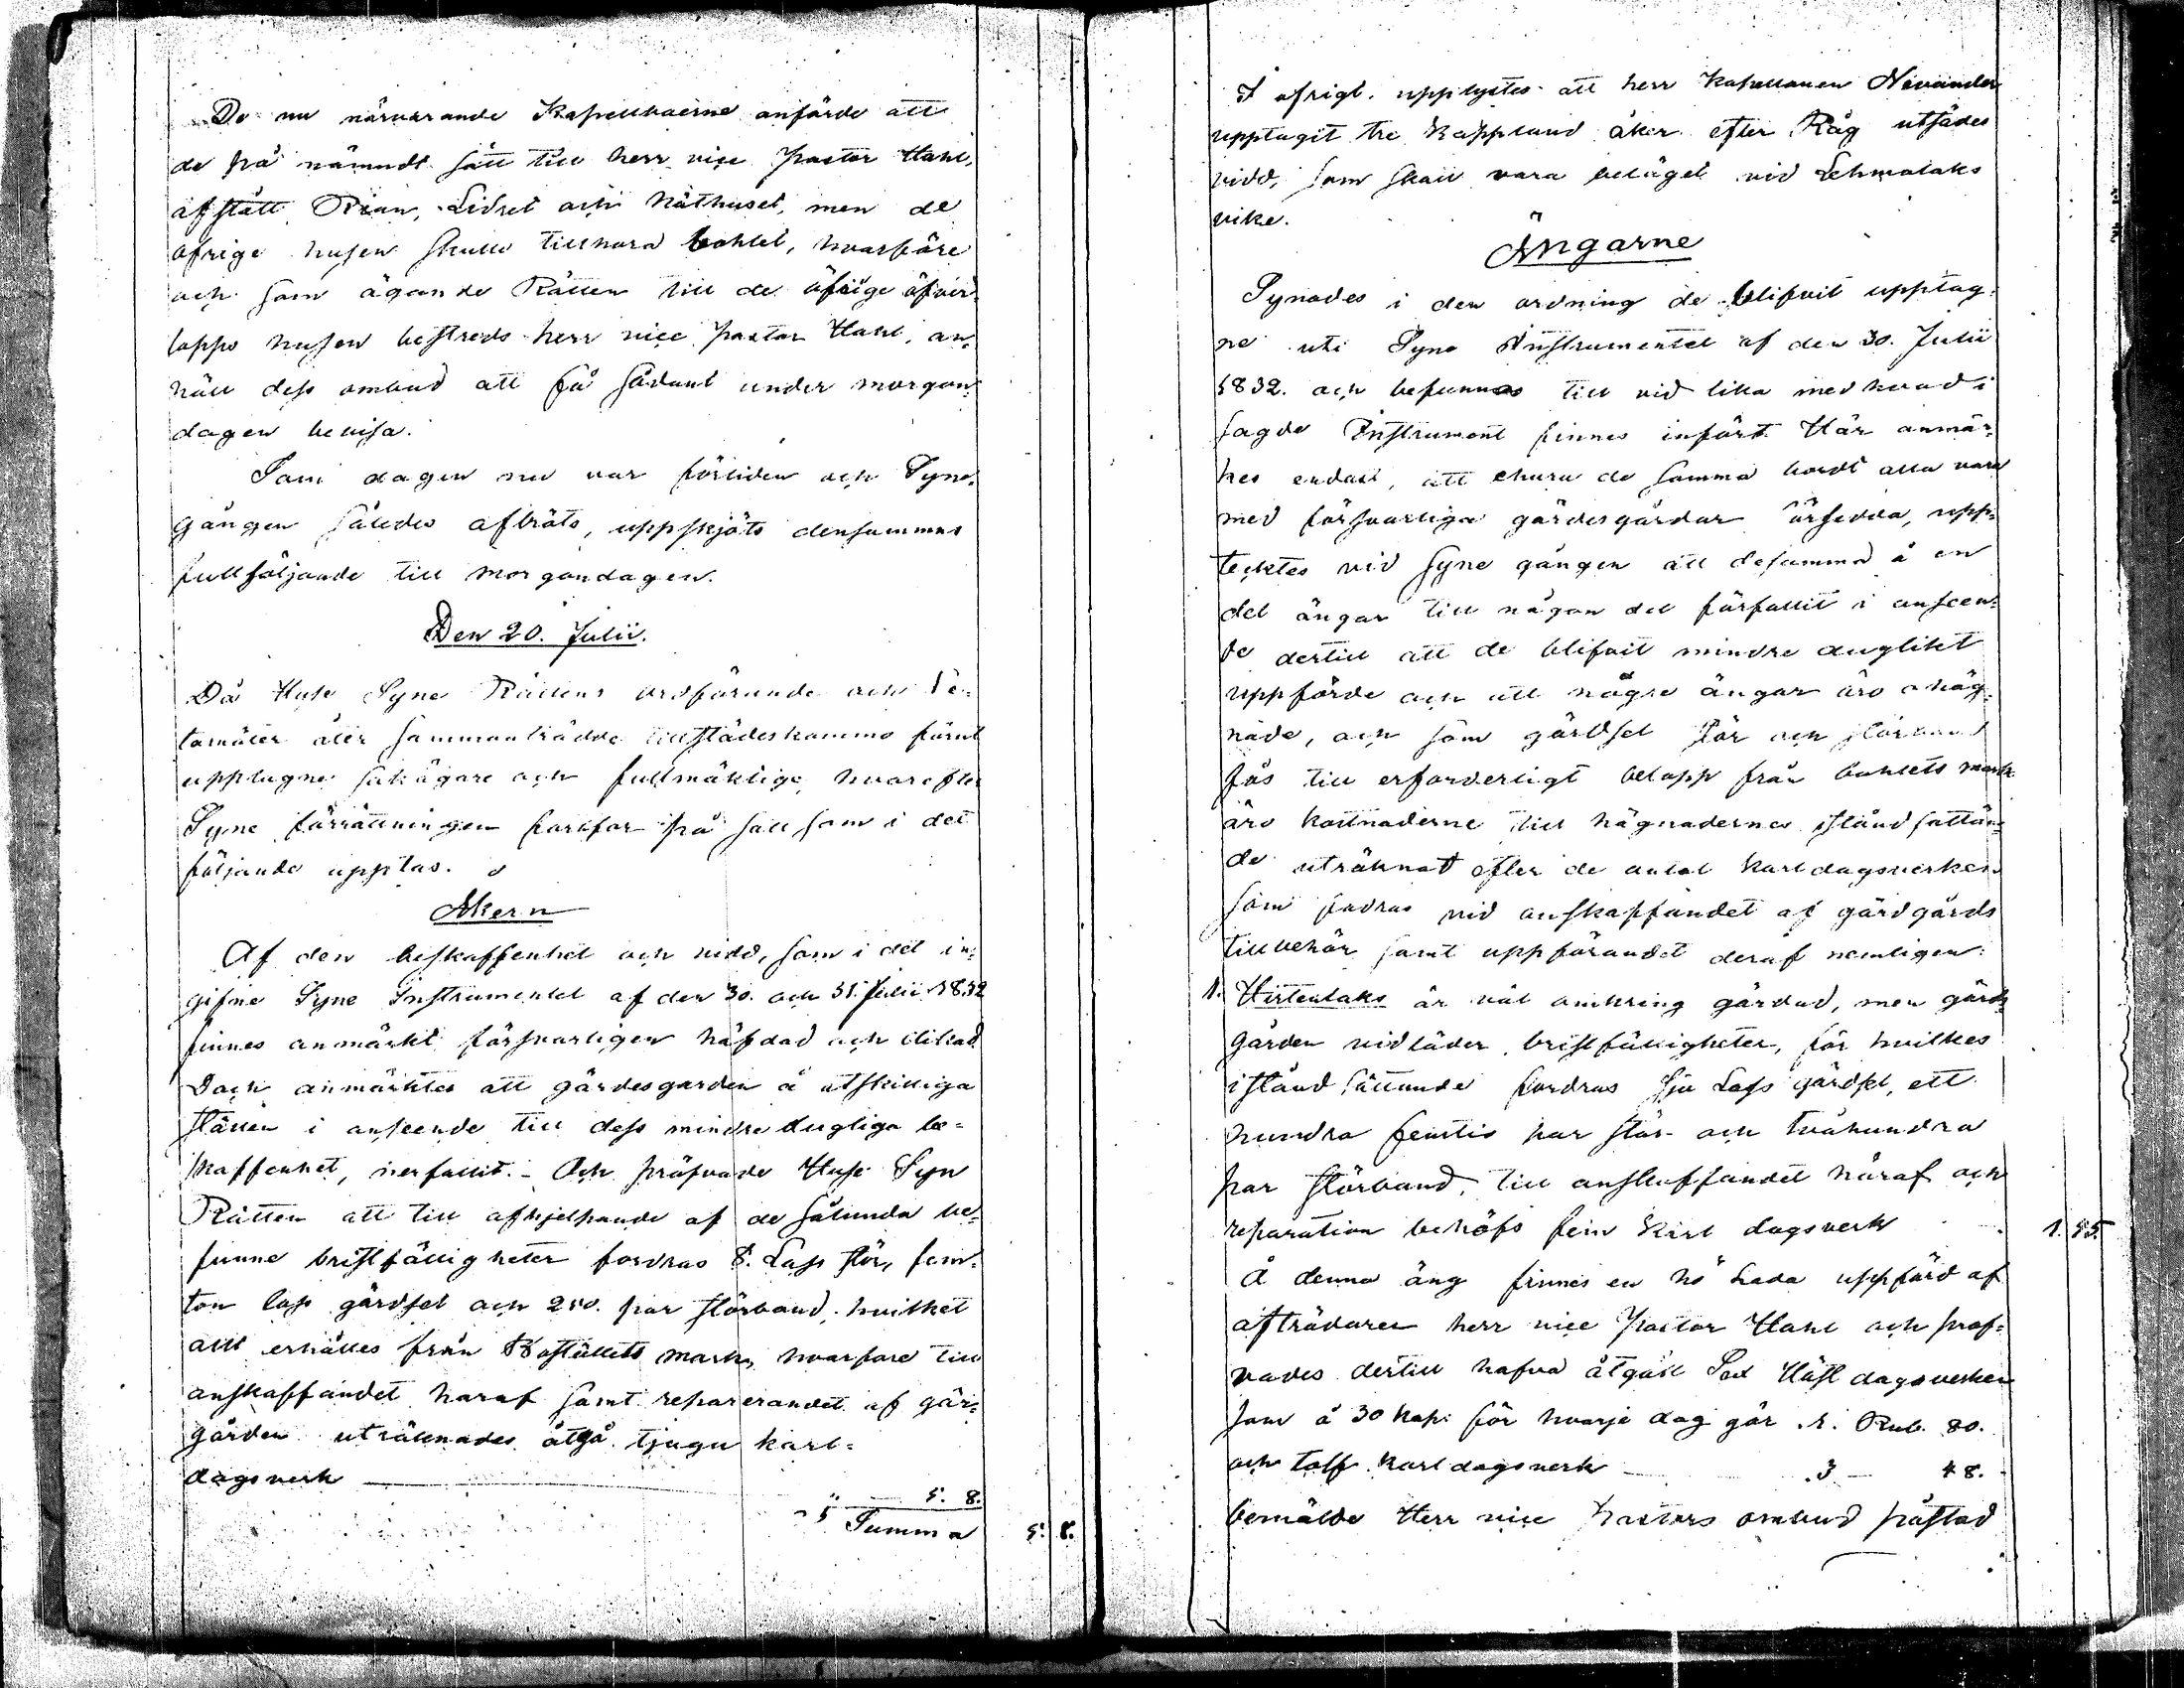 De nu närvarande Kapellboerne anförde att
de på nämndt sätt till herr vice Pastor Hahl,
afstått Rian, Lidret och Köthuset, men de
öfrige husen skulle tillhöra bohlet, hvarföre
och som ägande Rätten till de öfrige öfver-
lopps husen bestreds herr vice Pastor Hahl, an-
höll dess ombud att få sådant under morgon-
dagen bevisa.
Som dagen nu var förliden och Syne-
gången således afbröts, uppskjöts densammas
fullföljande till morgondagen.
Den 20. Julii.
Då Huse Syne Rättens ordförande och Le-
damöter åter sammanträdde tillstädeskommo förut
upptagne sakägare och fullmäktige, hvarefter
Syne förrättningen fortfor på sätt som i det
följande upptas.
Åkern
Af den beskaffenhet och vidd, som i det in-
gifne Syne Instrumentet af den 30. och 31. Julii 1832
finnes anmärkt försvarligen häfdad och dikad
Dock anmärktes att gärdesgården å åtskilliga
ställen i anseende till dess mindre dugliga be-
skaffenhet, nerfallit. - Och pröfvade Huse Syn
Rätten att till afhjelpande af de sålunda be-
funne bristfälligheter fordras 8. Lass stör, fem-
ton lass gärdsel och 250. par störband, hvilket
allt erhålles från Boställets mark, hvarföre till
anskaffandet häraf samt reparerandet af gär-
gården uträknades åtgå tjugu karl-
dagsverk
" 5. 8.
Summa 5. 8.
I öfrigt upplystes att herr Kapellanen Nevander
upptagit tre Kappland åker efter Råg utsädes
vidd, som skall vara beläget vid Lehmälaks
vike.
Ängarne
Synades i den ordning de blifvit upptag-
ne uti Syne Instrumentet af den 30. Julii
1832. och befunnos till vid lika med hvad i
sagde Instrument finnes infört. Här anmär-
kes endast, att ehuru de samma bordt alla vara
med försvarliga gärdesgårdar försedda, upp-
täcktes vid syne gången att desamma å en
del ängar till någon del förfallit i anseen-
de dertill att de blifvit mindre duglikt
uppförde och att någre ängar äro ohäg-
nade, och som gärdsel stör och störband
fås till erforderligt belopp från bohlets mark
äro kostnaderne till hägnadernes iståndsättan-
de uträknat efter de antal karldagsverken
som fodras vid anskaffandet af gärdgårds
tillbehör samt uppförandet deraf nemligen:
1. Hirtenlaks är väl omkring gärdad, men gärds
gården vidlåder bristfälligheter, för hvilkes
istånd sättande fordras sju Lass gärdsel, ett
hundra femtio par stör och tvåhundra
par störband, till anskaffandet häraf och
reparation behöfs fem Karl dagsverk 1. 45.
Å denna äng finnes en hö Lada uppförd af
afträdaren herr vice Pastor Hahl och pröf-
vades dertill hafva åtgått Sex Häst dagsverken
som å 30 kop. för hvarje dag gör .1. Rub. 80.
och tolf karl dagsverk .3 48.
bemälde Herr vice Pastors ombud påstod